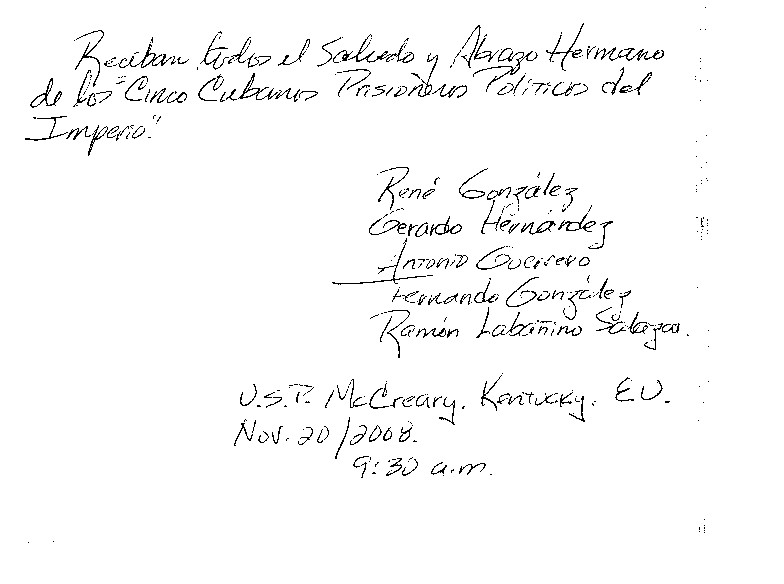 Reciban todos el Saludo y Abrazo Hermano
de los "Cinco Cubanos Prisioneros Políticos del
Imperio."
René González
Gerardo Hernández
Antonio Guerrero
Fernando González
Ramón Labañino Salazar.
U.S.P. McCreary, Kentucky. EU.
Nov. 20/2008.
9:30 a.m.